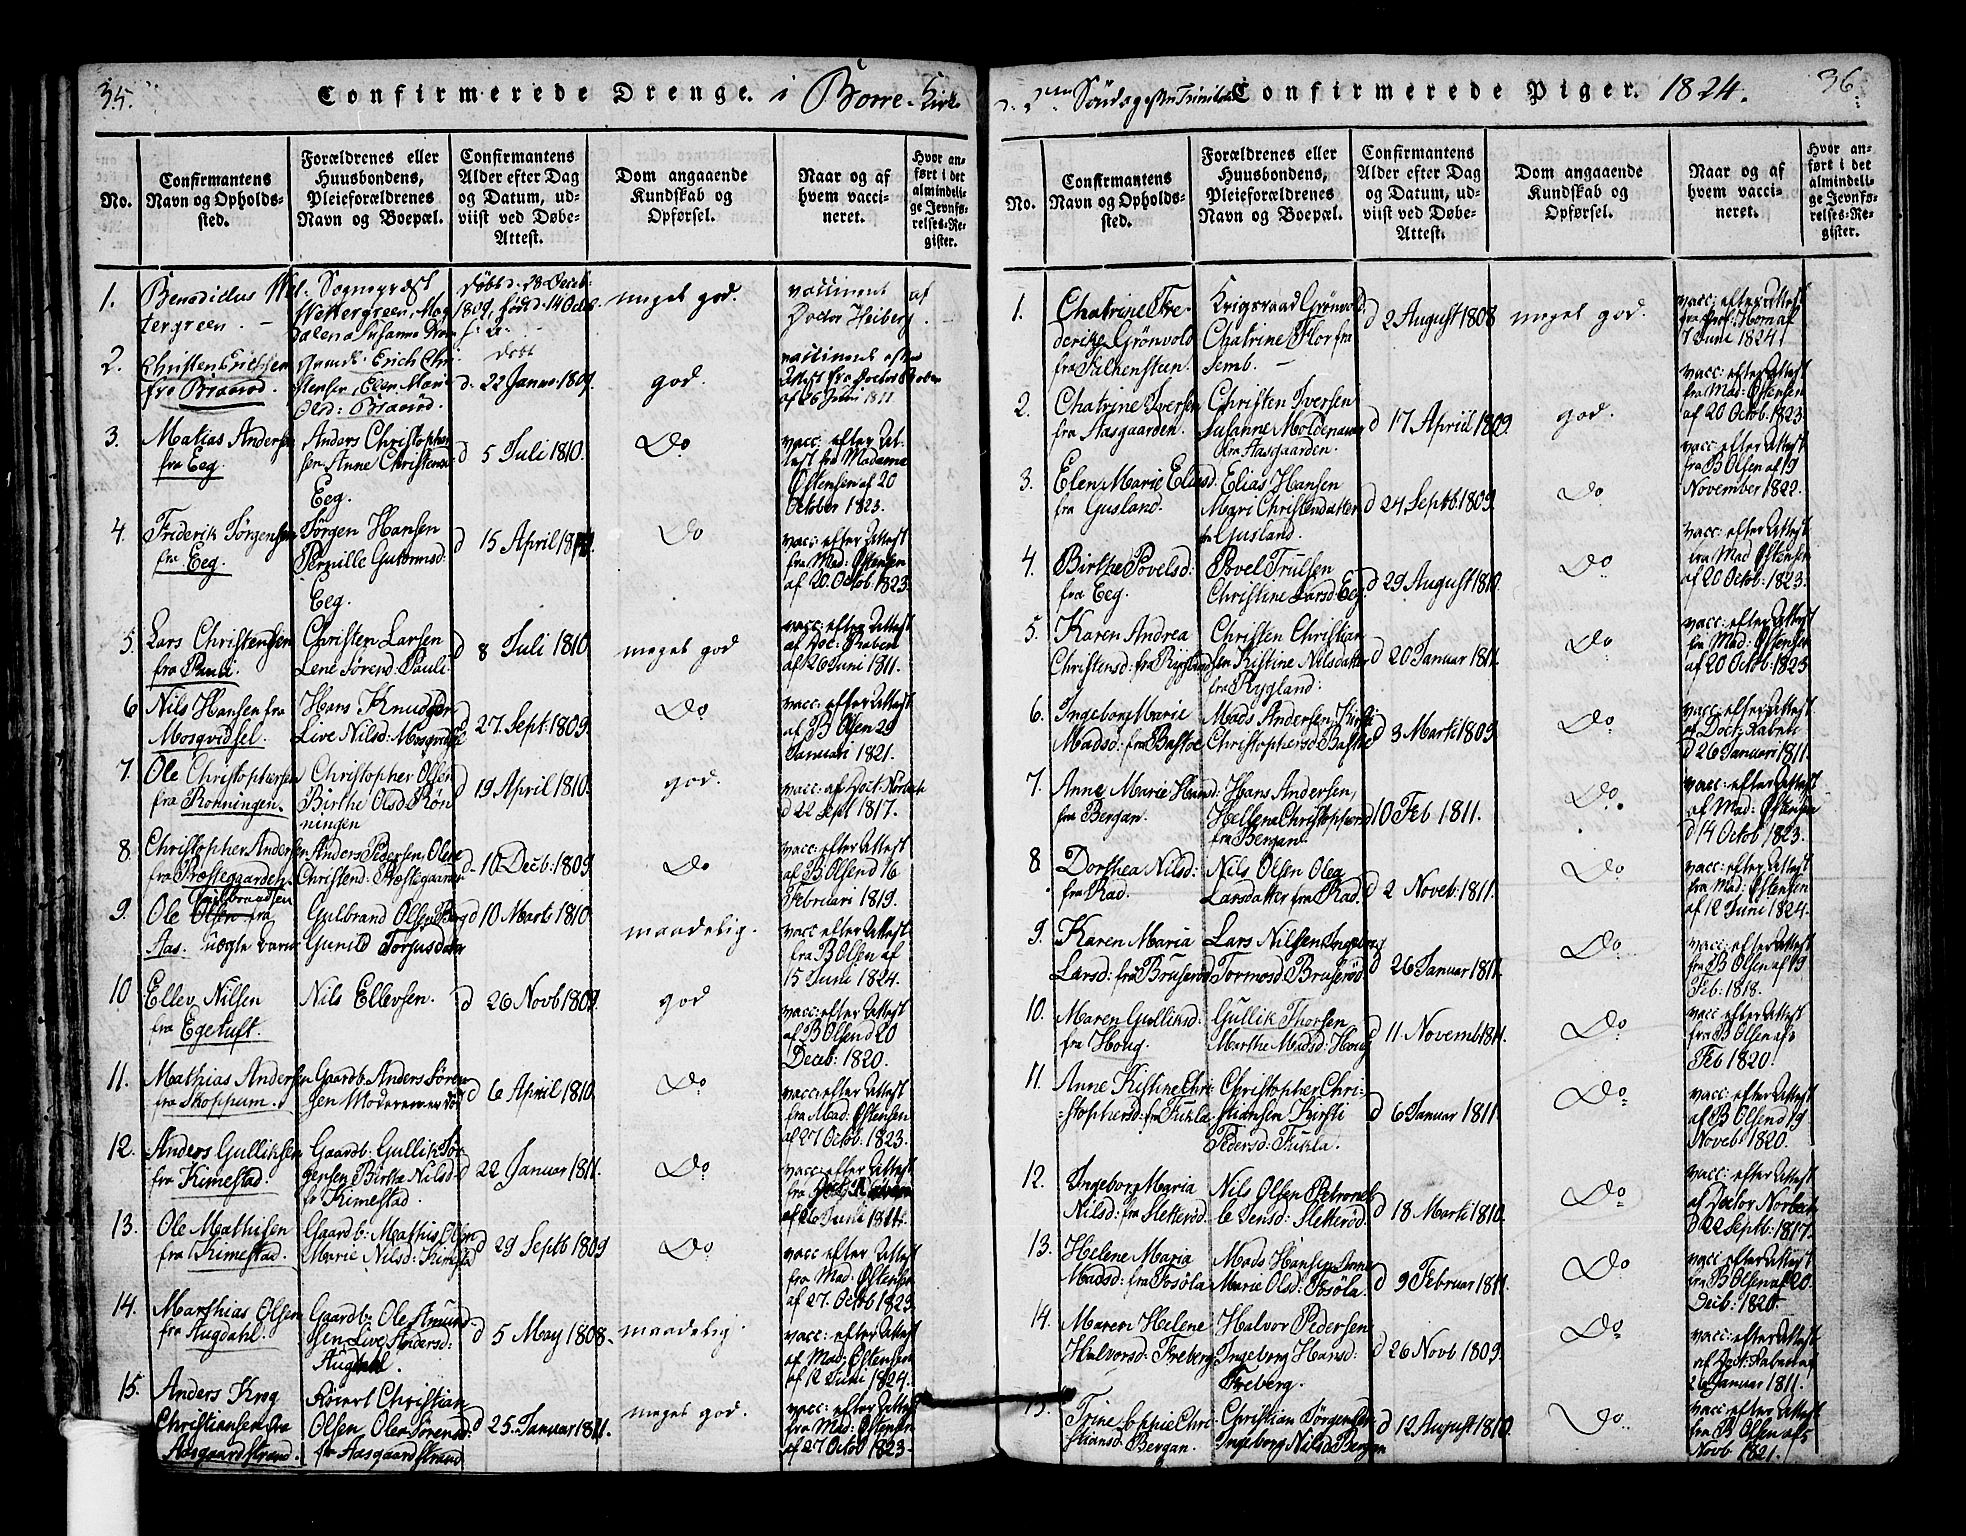 35.
Confirmerede Drenge. i Borre Kirke
No.
Confirmantens
Navn og Opholds-
sted.
Forældrenes eller
Huusbondens,
Pleieforældrenes
Navn og Boepæl.
Confirmantens
Alder efter Dag
og Datum, ud-
viist ved Døbe-
Attest.
Dom angaaende
Kundskab og
Opførsel.
Naar og af
hvem vacci-
neret.
Hvor an-
ført i det
almindeli-
ge Jevnfø-
relses-Re-
gister.
1.
Benedictus Wet-
tergreen.
Sogneprest
Wettergreen, Mag-
dalena Susanna
døbt d. 28 Decb:
1809, født d. 14 Octb.
meget god.
vaccineret af
Doctor Heiberg
2.
Christen Erichsen
fra Braarød.
Erich Chri-
stensen, Elen Marie
Olsd: Braarød.
døbt
d. 22 Januar 1809.
god.
vaccineret efter
Attest fra Doctor Graben
af 26 Juni 1811
3.
Matias Andersen
fra Eeg.
Anders Christopher-
sen Anne Christensd:
Eeg.
d 5 Juli 1810.
Do
vacc: efter At-
test fra Madame
Østensen af 20
October 1823.
4.
Friderik Jørgensen
fra Eeg.
Jørgen Hansen
Pernille Guttormsd:
Eeg.
d 15 April
Do
vacc: efter Attest
fra Mad: Østensen
af 20 Octob: 1823.
5.
Lars Christensen
fra Pauli.
Christen Larsen
Lene Sørensd: Pauli
d 8 Juli 1810
meget god
vacc: efter Attest
af Doc: Graben
af 26 Juni 1811.
6
Nils Hansen fra
Mosqvidsel.
Hans Knudsen
Live Nilsd: Mosqvidsel
d 27 Sept: 1809.
Do
vacc: efter Attest
af B Olsen 29
Januari 1821.
7.
Ole Christophersen
fra Rønningen.
Christopher Olsen
Birthe Olsd Røn-
ningen
d 19 April 1810.
god.
vacc: af Doct: Norbech
d 22 Sept 1817.
8.
Christopher Andersen
fra Præstegaarden.
Anders Pedersen, Olene
Christend: Præstegaarden
d 10 Decb: 1809.
Do
vacc: efter Attest
af B Olsen d 16
Februari 1819.
9.
Gulbrandsen
Ole Olsen fra
Aas. uægte barn
Gulbrand Olsen Berg
Gunild Torgusdatter
d 10 Marti 1810.
maadelig.
vacc efter Attest
fra B Olsen af
15 Juni 1824.
10
Ellev Nilsen
fra Egetuft.
Nils Ellevsen.
d 26 Novb 1809.
god
vacc: efter Attest
af B Olsen d 20
Decb: 1820.
11.
Mathias Andersen
fra Skoppum.
Gaardb: Anders Søren-
sen Moderen er død
d 6 April 1810.
Do
vacc: efter Attest
fra Mad: Østensen
af 27 Octob. 1823.
12.
Anders Gulliksen
fra Kimestad.
Gaardb: Gullik Jør-
gensen Birthe Nilsd:
fr Kimestad.
d 22 Januar 1811.
Do
vacc: efter Attest
fra Doct. Raben
af 26 Juni 1811.
13.
Ole Mathisen
fra Kimestad.
Gaardb: Mathis Olsen
Marie Nilsd: Kimestad
d 29 Septb 1809
Do
vacc efter Attest
fra Mad: Østensen
af 27. Octb 1823.
14.
Matthias Olsen
fra Augdahl.
Gaardb: Ole Amund-
sen Live Andersd:
Augdahl.
d 5 May 1808.
maadelig.
vacc: efter Attest
af Mad: Østensen
af 12 Juni 1824.
15.
Anders Krog
Christiansen fra
Aasgaardstrand.
Christian
Olsen, Olea Sørensd:
fr Aasgaardstrand
d 25. Januar 1811.
meget god.
vacc: efter Attest
fra Mad: Østensen
af 27 Octob 1823.
d. 2den Søndag efter Trinitatis
Confirmerede Piger. 1824.
36.
No.
Confirmantens
Navn og Opholds-
sted.
Forældrenes eller
Huusbondens,
Pleieforældrenes
Navn og Boepæl.
Confirmantens
Alder efter Dag
og Datum, ud-
viist ved Døbe-
Attest.
Dom angaaende
Kundskab og
Opførsel.
Naar og af
hvem vacci-
neret.
Hvor an-
ført i det
almindeli-
ge Jevnfø-
relses-Re-
gister.
1.
Chatrine Fre-
derikke Grønvold
fra Falkensteen.
Krigsraad Grønvold
Chatrine Flor fra
Semb.
d 2 August 1808
meget god.
vacc: efter Attest
fra Prof: Horn af
7 Juni 1824.
2.
Chatrine Iversen
fra Aasgaarden.
Christen Iversen
Susanne Moldenauer
fra Aasgaarden.
d 17 April 1809.
god.
vacc. efter Attest
fra Mad: Østensen
af 20 Octob: 1823.
3.
Elen Marie Eliasd:
fra Gusland.
Elias Hansen
Mari Christendatter
fra Gusland.
d 24 Septb. 1809.
Do
vacc: efter Attest
fra B Olsen af 19
November 1822.
4.
Birthe Povelsd:
fra Eeg.
Povel Trulsen
Christine Larsd Eeg.
d 29 August 1810.
Do
vacc: efter Attest
fra Mad Østensen
af 20 Octob: 1823.
5.
Karen Andrea
Christensd: fra Rygland
Christen Christian-
sen Kistine Nilsdatter
fra Rygland:
d 20 Januar 1811.
Do
vacc: efter Attest
fra Mad: Østensen
af 20 Octb: 1823
6.
Ingeborg Marie
Madsd: fra Bastøe
Mads Andersen, Kirsti
Christophersd Bastøe
d 3 Marti 1809.
Do
vacc: efter Attest
af Doct. Raben
d 26 Januari 1811.
7.
Anne Marie Hansd:
fra Bergan.
Hans Andersen,
Hellena Christophersd
fra Bergan.
d 10 Feb 1811.
Do.
vacc: efter Attest
af Mad: Østensen
d 14 Octob 1823.
8
Dorthea Nilsd:
fra Rad.
Nils Olsen Oleg
Larsdatter fra Rad.
d 2 Noveb: 1811.
Do
vacc: efter Attest
fra Mad: Østensen
af 12 Juni 1824.
9.
Karen Maria
Larsd: fra Bruserød
Lars Nilsen Ingeborg
Tormosd Bruserød
d 26 Januar 1811.
Do
vacc: efter Attest
fra B Olsen af 19
Feb: 1818.
10.
Maren Gulliksd:
fra Houg.
Gullik Thorsen
Marthe Madsd: Houg
d 11 Novemb 1811.
Do
vacc efter Attest
fra B Olsen af 3
Feb 1820.
11.
Anne Kistine Chri-
stophersd: fra Fuhla
Christopher Chri-
stiansen Kirsti
Pedersd: Fuhla.
d 6 Januar 1811
Do
vacc: efter Attest
af B Olsen d 19
Noveb 1820.
12.
Ingeborg Maria
Nilsd: fra Sletterød.
Nils Olsen Petronel-
le Jensd: Sletterød.
d 18 Marti 1810.
Do
vacc: efter Attest
af Doctor Norbech
d 22 Septb: 1817.
13.
Helene Maria
Madsd: fra Sosøla
Mads Hansen Anne
Marie Olsd: Sosøla.
d 9 Februar 1811.
Do
vacc: efter Attest
fra B Olsen af 20
Decb: 1820.
14.
Maren Helene
Halvorsd: Freberg
Halvor Pedersen
Ingeborg Hansd:
Freberg.
d 26 Novb 1809.
Do
vacc: efter Attest
af Doct: Raben af
26 Januar 1811.
15.
Trine Sophie Chri-
stiansd: Bergan.
Christian Jørgensen
Ingeborg Nilsd Bergan
d 12 August 1810.
Do
vacc: efter Attest
fra B Olsen af 5
Novb 1821.